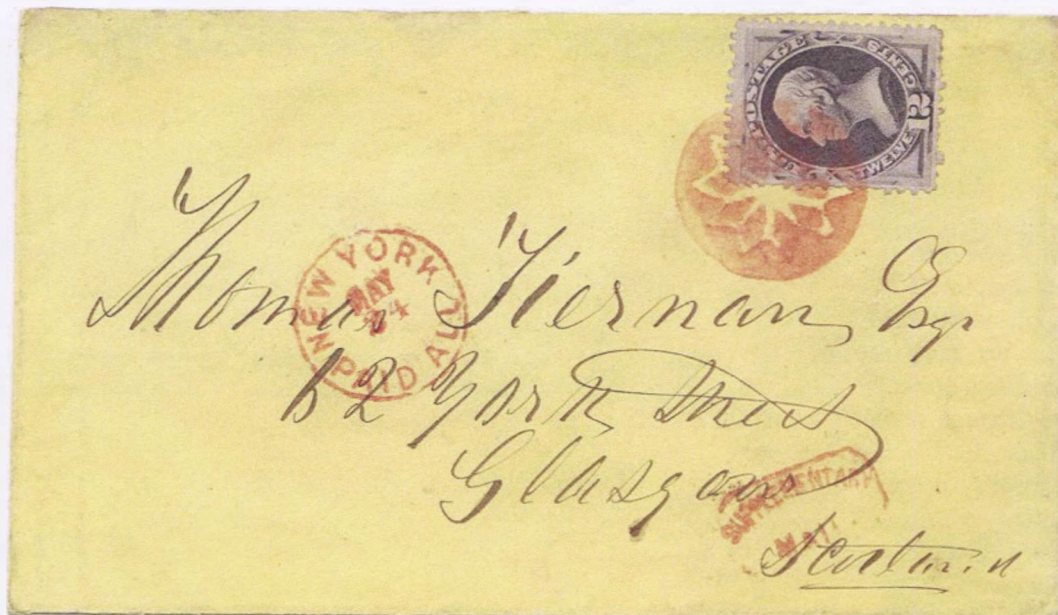 POSTAGE
TWELVE 12 CENTS
NEW YORK
MAY
24
PAID ALL
Thomas Tiernan, Esqr
62 York Street
Glasgow
SUPPLEMENTARY
MAIL
Scotland